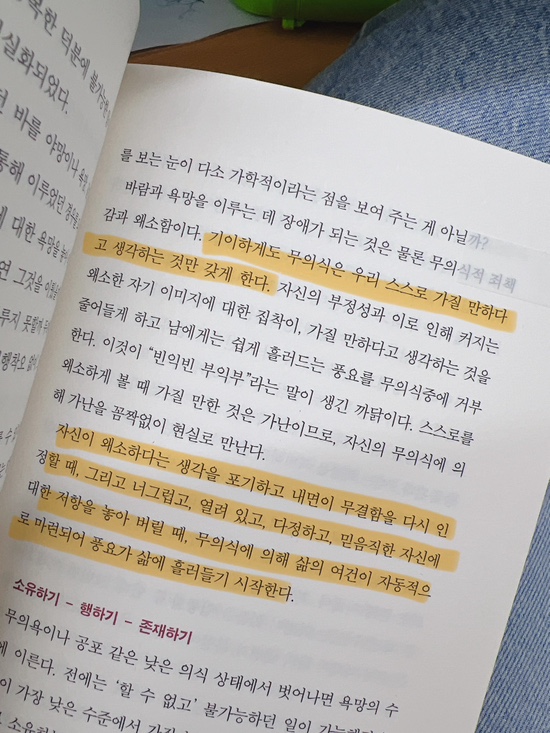 복한 덕분에 불가능
실화되었다.
던 바를 야망이나 욕
통해 이루었던 
에 대한 욕망을 놓
면 그것을 
루지 못할까
를 보는 눈이 다소 가학적이라는 점을 보여 주는 게 아닐까?
바람과 욕망을 이루는 데 장애가 되는 것은 물론 무의식적 죄책
감과 왜소함이다. 기이하게도 무의식은 우리 스스로 가질 만하다
고 생각하는 것만 갖게 한다. 자신의 부정성과 이로 인해 커지는
왜소한 자기 이미지에 대한 집착이, 가질 만하다고 생각하는 것을
줄어들게 하고 남에게는 쉽게 흘러드는 풍요를 무의식중에 거부
한다. 이것이 “빈익빈 부익부”라는 말이 생긴 까닭이다. 스스로를
왜소하게 볼 때 가질 만한 것은 가난이므로, 자신의 무의식에 의
해 가난을 꼼짝없이 현실로 만난다.
자신이 왜소하다는 생각을 포기하고 내면이 무결함을 다시 인
정할 때, 그리고 너그럽고, 열려 있고, 다정하고, 믿음직한 자신에
대한 저항을 놓아 버릴 때, 무의식에 의해 삶의 여건이 자동적으
로 마련되어 풍요가 삶에 흘러들기 시작한다.
소유하기 – 행하기 – 존재하기
무의욕이나 공포 같은 낮은 의식 상태에서 벗어나면 욕망의 수
에 이른다. 전에는 ‘할 수 없고’ 불가능하던 일이 가능해
이 가장 낮은 수준에서 가장
소유하